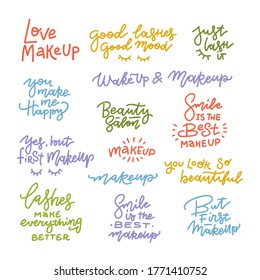 Love
Makeup
Good lashes
Good Mood
Just
lash
it
you
make me
Happy
WakeUp & Makeup
Beauty
Salon
Smile
IS THE
BEST
MAKEUP
Yes, but
FIRST MAKEUP
makeup
you look so
beautiful
makeup
Lashes
MAKE
everything
BETTER
Smile
is the
-BEST-
makeup
But
First
MAKEUP
shutterstock.com · 1771410752